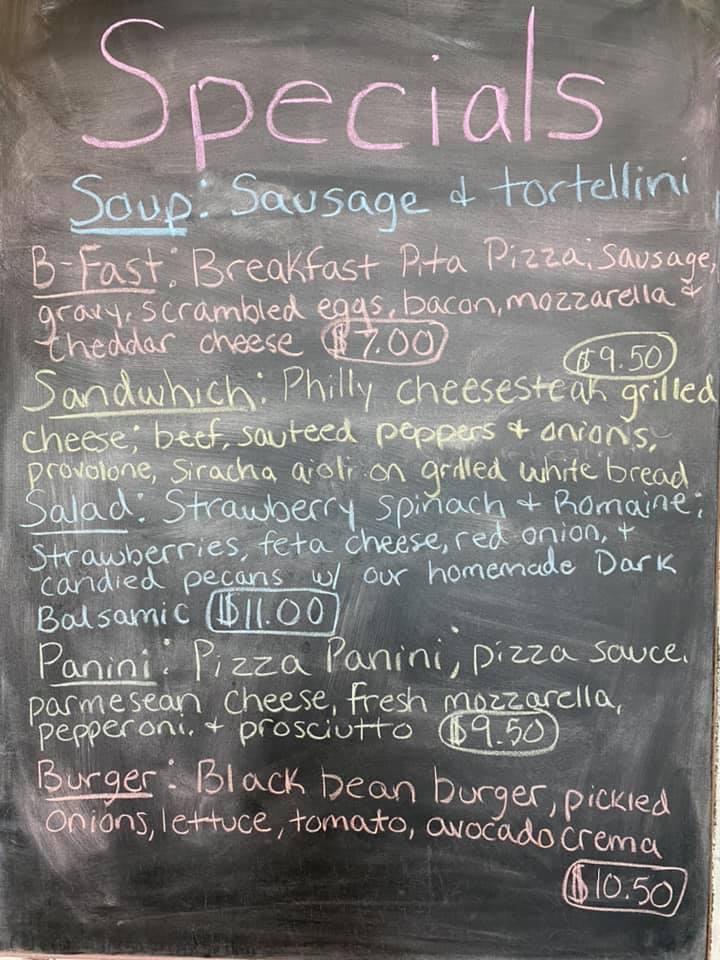 Specials
Soup: Sausage & tortellini
B-Fast: Breakfast Pita Pizza; Sausage,
gravy, scrambled eggs, bacon, mozzarella &
cheddar cheese $7.00
$9.50
Sandwhich: Philly cheesesteak grilled
cheese; beef, sauteed peppers & onions,
provolone, Siracha aioli on grilled white bread
Salad: Strawberry Spinach + Romaine;
Strawberries, feta cheese, red onion, +
candied pecans w/ our homemade Dark
Balsamic $11.00
Panini: Pizza Panini; pizza sauce,
parmesean cheese, fresh mozzarella,
pepperoni, & prosciutto $9.50
Burger: Black bean burger, pickled
onions, lettuce, tomato, avocado crema
$10.50